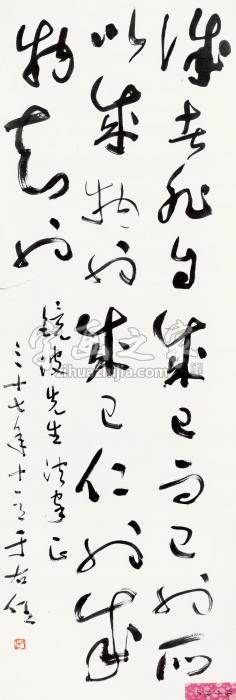 誠者非自成己而已也所
以成物也成己仁也成
物知也
鏡波先生法家正
三十七年十于右任
字画之家
zihuazhijia.com